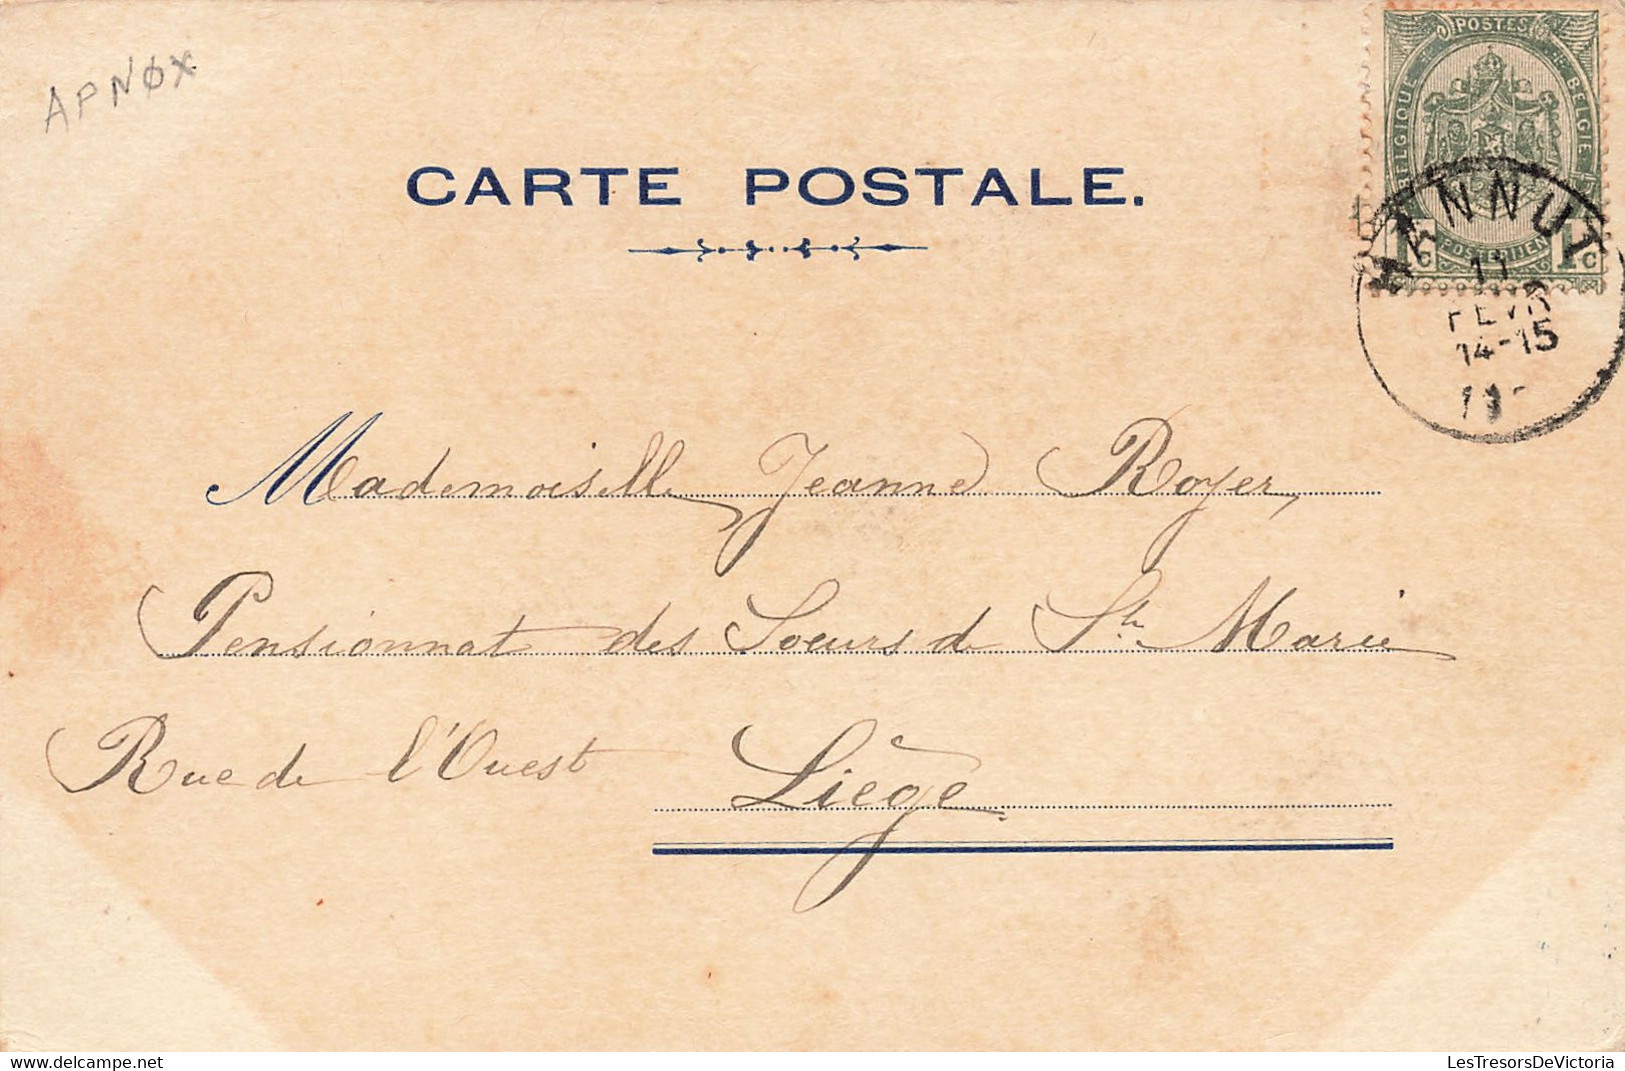 APNØX
POSTES
BELGIQUE
BELGIË
POSTERIJEN
1 C
1 C
HANNUT
11
FEVR
14-15
CARTE POSTALE.
Mademoiselle Jeanne Royer,
Pensionnat des Soeurs de Ste Marie
Rue de l'Ouest Liège
LesTresorsDeVictoria